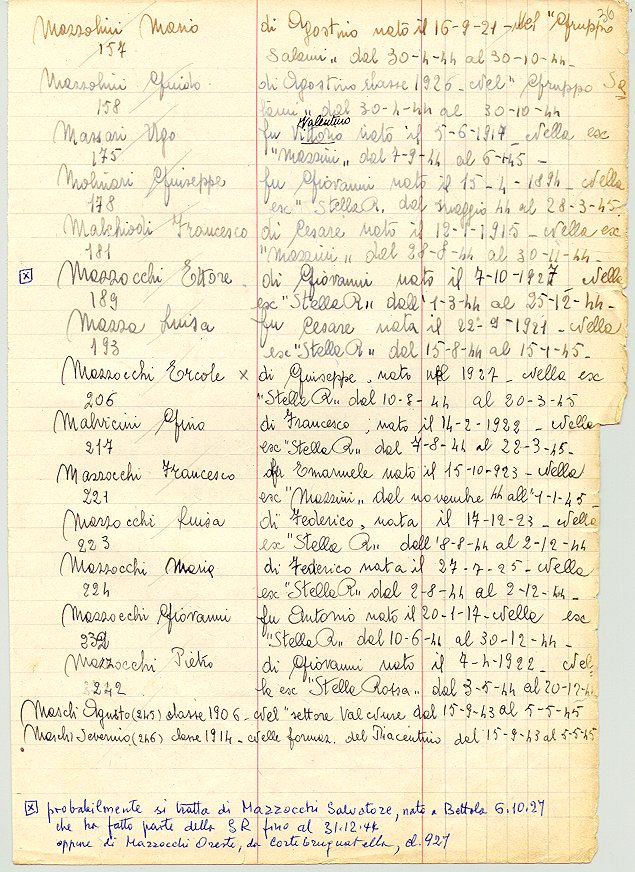 230
Mazzolini Mario di Agostino nato il 16-9-21 - Nel "Gruppo
157 Salami" dal 30-4-44 al 30-10-44 -
Mazzolini Guido di Agostino classe 1926 - Nel "Gruppo Sa
158 lami" dal 30-4-44 al 30-10-44
Valentino
Massari Ugo fu Vittorio nato il 5-6-1917 - Nella ex
175 "Mazzini" dal 7-9-44 al 6-1-45 -
Molinari Giuseppe fu Giovanni nato il 15-4-1894 - Nella
178 ex "Stella R. dal maggio 44 al 28-3-45 -
Malchiodi Francesco di Cesare nato il 19-1-1915 - Nella ex
181 "Mazzini" dal 28-8-44 al 30-11-44 -
x Mazzocchi Ettore di Giovanni nato il 7-10-1927 Nella
189 ex "Stella R" dall'1-3-44 al 25-12-44 -
Mazza Luisa fu Cesare nata il 22-9-1921 - Nella
193 ex "Stella R" dal 15-8-44 al 15-1-45 -
Mazzocchi Ercole x di Giuseppe, nato nel 1927 - Nella ex
206 "Stella R" dal 10-8-44 al 20-3-45
Malvicini Gino di Francesco, nato il 14-2-1922 - Nella
217 ex "Stella R" dal 7-8-44 al 28-3-45 -
Mazzocchi Francesco fu Emanuele nato il 15-10-923 - Nella
221 ex "Mazzini" dal novembre 44 all'1-1-45
Mazzocchi Luisa di Federico, nata il 17-12-23 - Nella
223 ex "Stella R" dall'8-8-44 al 2-12-44
Mazzocchi Maria di Federico nata il 27-7-25 - Nella
224 ex "Stella R" dal 2-8-44 al 2-12-44 -
Mazzocchi Giovanni fu Antonio nato il 20-1-17 - Nella ex
232 "Stella R" dal 10-6-44 al 30-12-44 -
Mazzocchi Pietro di Giovanni nato il 4-4-1922 - Nel-
242 la ex "Stella Rossa" dal 3-5-44 al 20-12-44
Maschi Agusto (245) classe 1906 - Nel "settore Val Nure dal 15-9-43 al 5-5-45
Maschi Severino (246) classe 1914 - Nelle formaz. del Piacentino dal 15-9-43 al 5-5-45
x probabilmente si tratta di Mazzocchi Salvatore, nato a Bettola 6.10.27
che ha fatto parte della SR fino al 31.12.44
oppure di Mazzocchi Oreste, da Cortebrugnatella, cl. 927